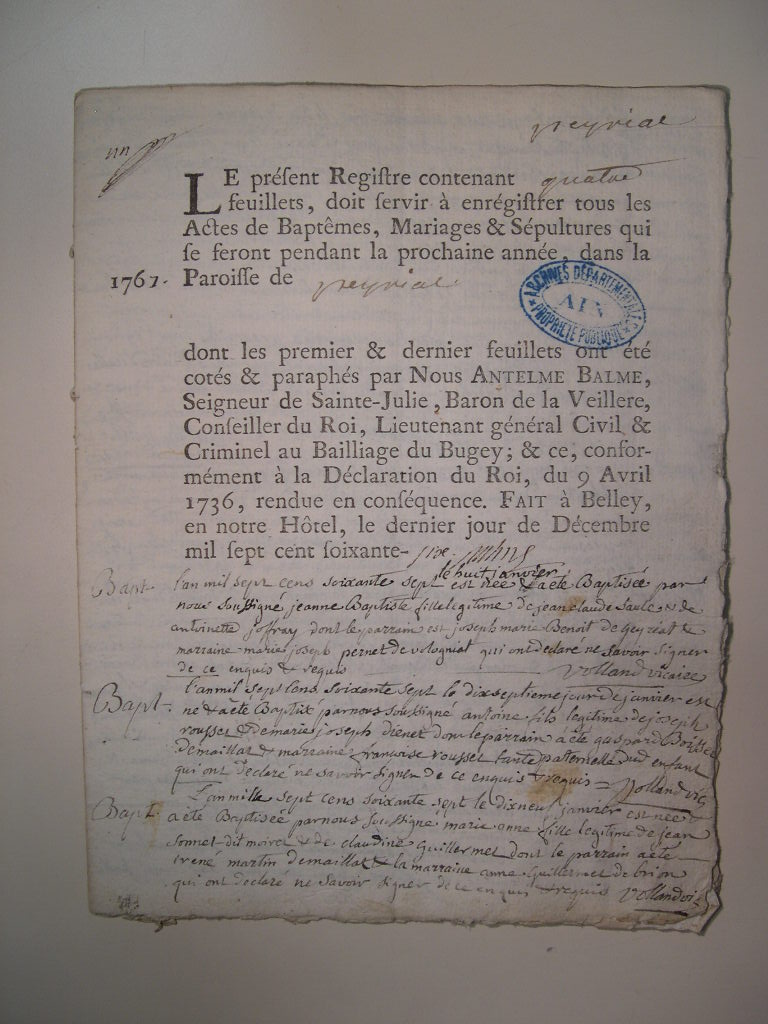 un
peyriac
LE préſent Regiſtre contenant quatre
feuillets, doit ſervir à enrégiſtrer tous les
Actes de Baptêmes, Mariages & Sépultures qui
ſe feront pendant la prochaine année, dans la
1767. Paroiſſe de peyriac
ARCHIVES DÉPARTEMENTALES
AIN
PROPRIÉTÉ PUBLIQUE
dont les premier & dernier feuillets ont été
cotés & paraphés par Nous ANTELME BALME,
Seigneur de Sainte-Julie, Baron de la Veillere,
Conſeiller du Roi, Lieutenant général Civil &
Criminel au Bailliage du Bugey; & ce, confor-
mément à la Déclaration du Roi, du 9 Avril
1736, rendue en conſéquence. FAIT à Belley,
en notre Hôtel, le dernier jour de Décembre
mil ſept cent ſoixante- six.
le huit janvier
Bapt. l'an mil sept cens soixante sept est née & a été Baptisée par
nous soussigné jeanne Baptiste fille legitime de jean claude & de
antoinette joffray dont le parrain est joseph marie Benoit de Geyriat &
marraine marie joseph pernet de volognat qui ont declaré ne savoir signer
de ce enquis & requis Volland vicaire
Bapt. l'an mil sept cens soixante sept le dix septieme jour de janvier est
né & a été Baptisé par nous soussigné antoine fils legitime de joseph
rousset & de marie joseph drenet dont le parrain a été gaspard
de maillat & marraine francoise rousset tante paternelle dud enfant
qui ont declaré ne savoir signer de ce enquis & requis Volland vic
Bapt. L'an mille sept cens soixante sept le dix neuf janvier est née &
a été Baptisée par nous soussigné marie anne fille legitime de jean
sonnet dit moiret & de claudine guillermet dont le parrain a été
irené martin de maillat & la marraine anne Guillermet de brion
qui ont declaré ne savoir signer de ce enquis & requis Volland vic